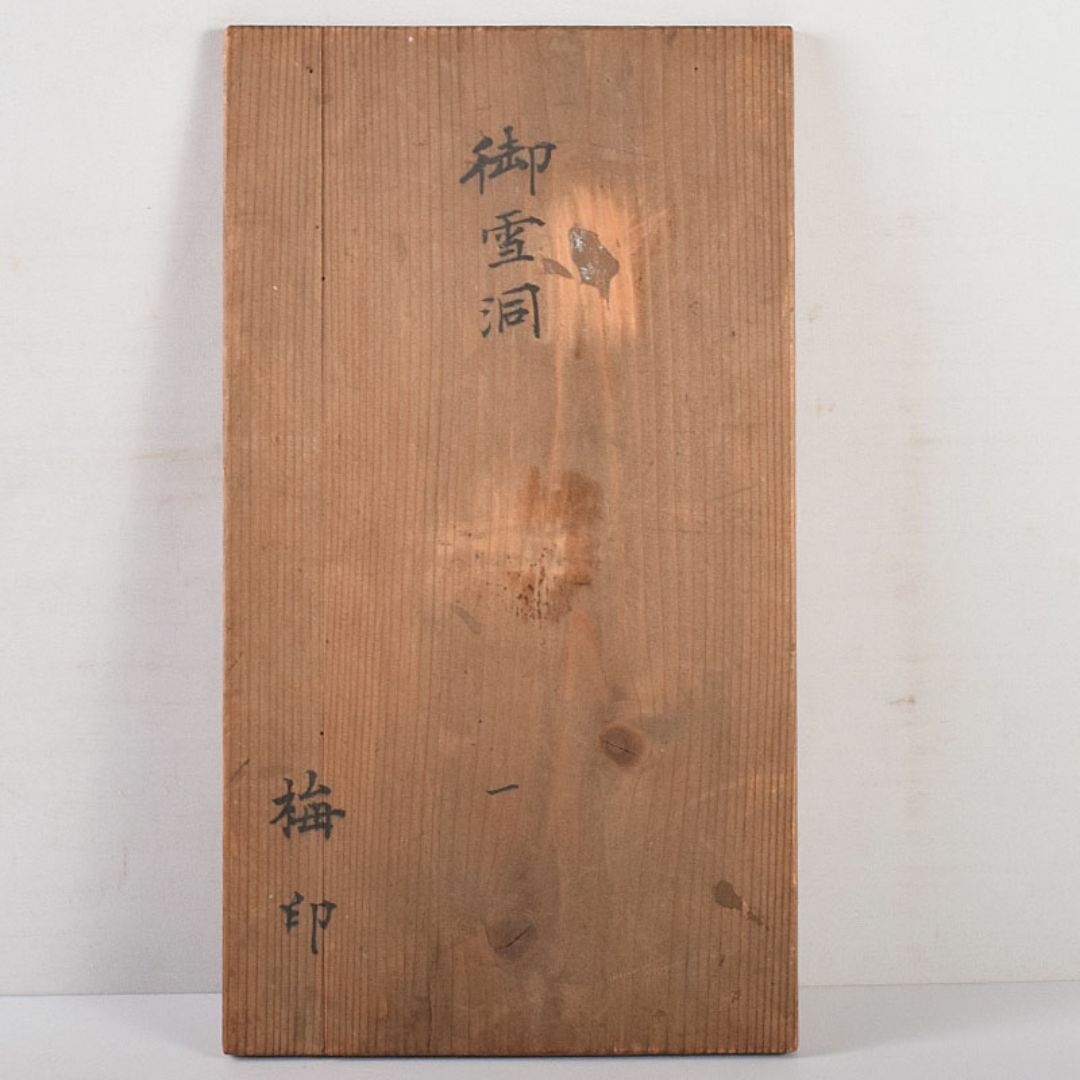 御雪洞
一
梅印